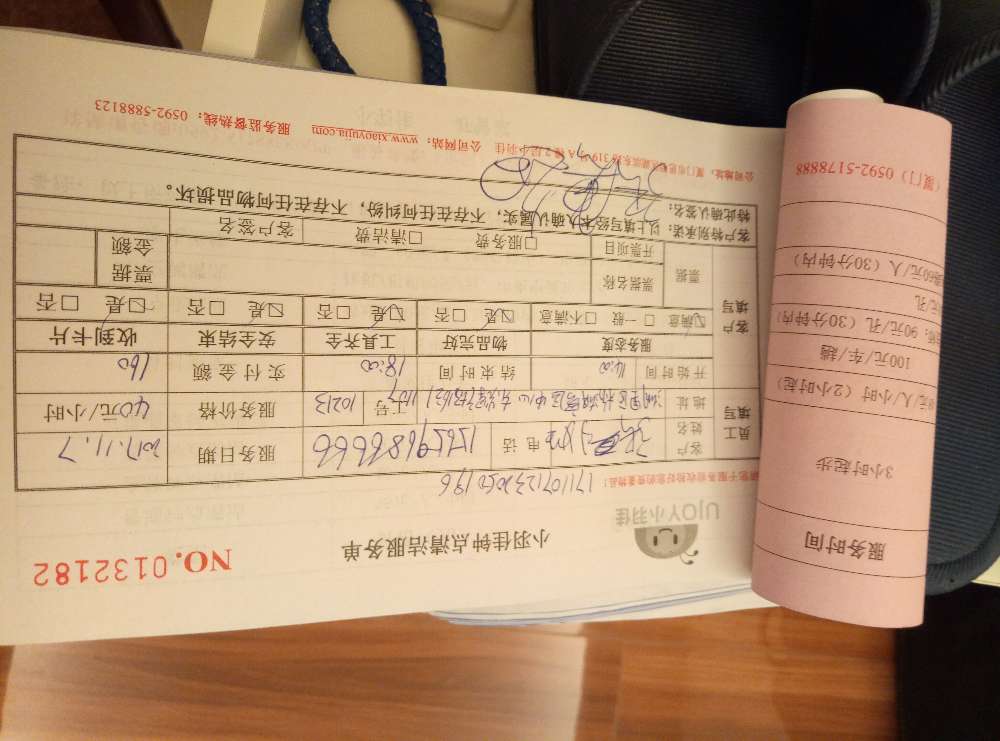 UJOY小羽佳
小羽佳钟点清洁服务单
NO.0132182
171107123050196
员工填写
客户姓名 电话 15659686666 服务日期 2017.11.7
地址 工号 10213 服务价格 40元/小时
开始时间 14:00 结束时间 18:00 实付金额 160
客户填写
服务态度 物品完好 工具齐全 安全结束 收到卡片
☑满意 □一般 □不满意 ☑是 □否 ☑是 □否 ☑是 □否 ☑是 □否
票据 票据名称 票据金额
开票项目 □服务费 □清洁费 客户签名
客户特别承诺:以上填写经本人确认属实,不存在任何纠纷,不存在任何物品损坏。
特此确认签名:
公司网站:www.xiaoyujia.com 服务监督热线:0592-5888123
服务时间
3小时起步
元/小时/人(2小时起)
100元/车/趟
90元/孔(30分钟内)
元/孔
60元/人(30分钟内)
(厦门)0592-5178888